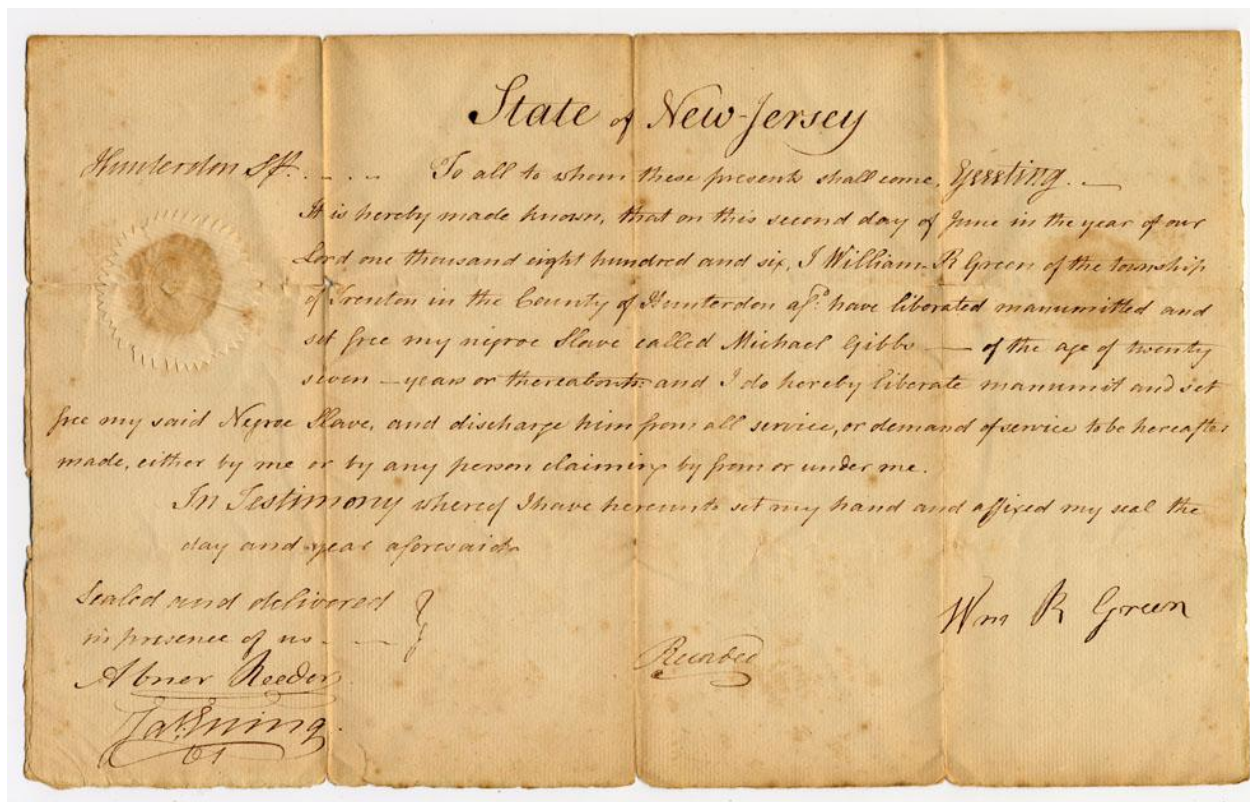 State of New-Jersey
Hunterdon Ss. . _ . .. To all to whom these presents shall come, Greeting. _
It is hereby made known, that on this second day of June in the year of our
Lord one thousand eight hundred and six, I William R Green of the township
of Trenton in the County of Hunterdon afsd. have liberated manumitted and
set free my nigroe Slave called Michael Gibbs — of the age of twenty
seven — years or thereabouts and I do hereby liberate manumit and set
free my said Negroe Slave, and discharge him from all service, or demand of service to be hereafter
made, either by me or by any person claiming by from or under me.
In Testimony whereof I have hereunto set my hand and affixed my seal the
day and year aforesaid
Sealed and delivered
in presence of us - —
Wm R Green
Abner Reeder
Recorded